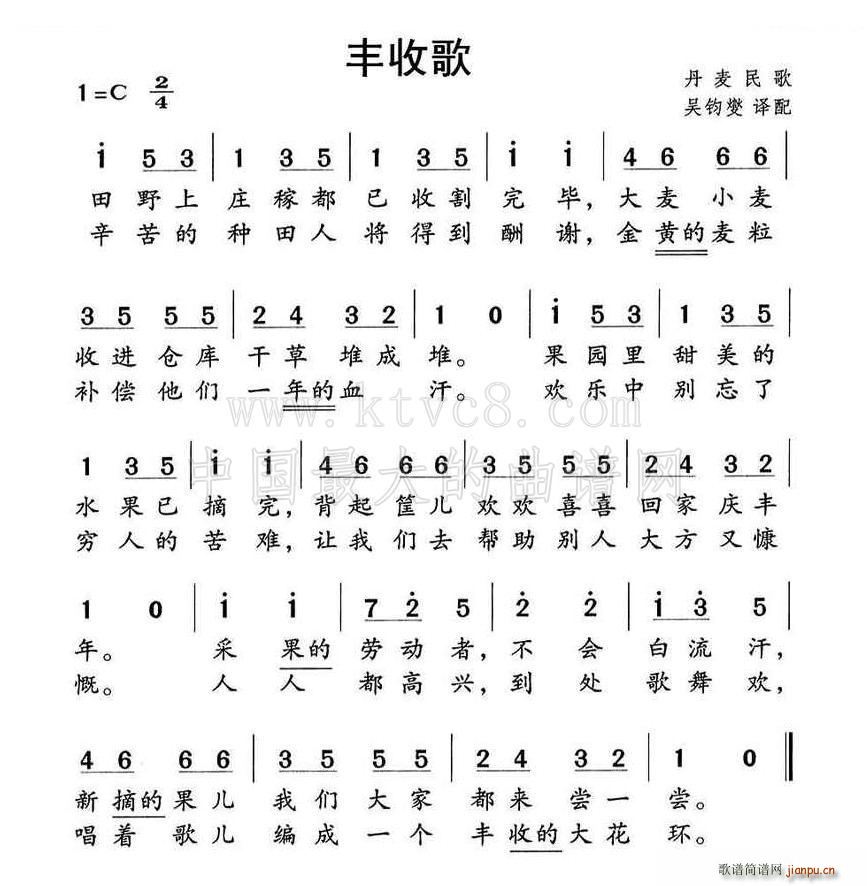 丰收歌
1=C 2/4
丹麦民歌
吴钧燮 译配
i 5 3 | 1 3 5 | 1 3 5 | i i | 4 6 6 6 |
田野上庄稼都已收割完毕，大麦小麦
辛苦的种田人将得到酬谢，金黄的麦粒
3 5 5 5 | 2 4 3 2 | 1 0 | i 5 3 | 1 3 5 |
收进仓库干草堆成堆。果园里甜美的
补偿他们一年的血汗。欢乐中别忘了
www.ktvc8.com
中国最大的曲谱网
1 3 5 | i i | 4 6 6 6 | 3 5 5 5 | 2 4 3 2 |
水果已摘完，背起筐儿欢欢喜喜回家庆丰
穷人的苦难，让我们去帮助别人大方又慷
1 0 | i i | 7 2 5 | 2 2 | i 3 5 |
年。采果的劳动者，不会白流汗，
慨。人人都高兴，到处歌舞欢，
4 6 6 6 | 3 5 5 5 | 2 4 3 2 | 1 0 ‖
新摘的果儿我们大家都来尝一尝。
唱着歌儿编成一个丰收的大花环。
歌谱简谱网
jianpu.cn